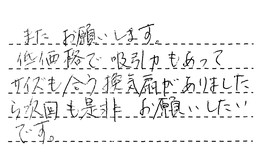 また お願いします。
低価格で吸引力もあって
サイズも合う換気扇がありました
ら次回も是非 お願いしたい
です。